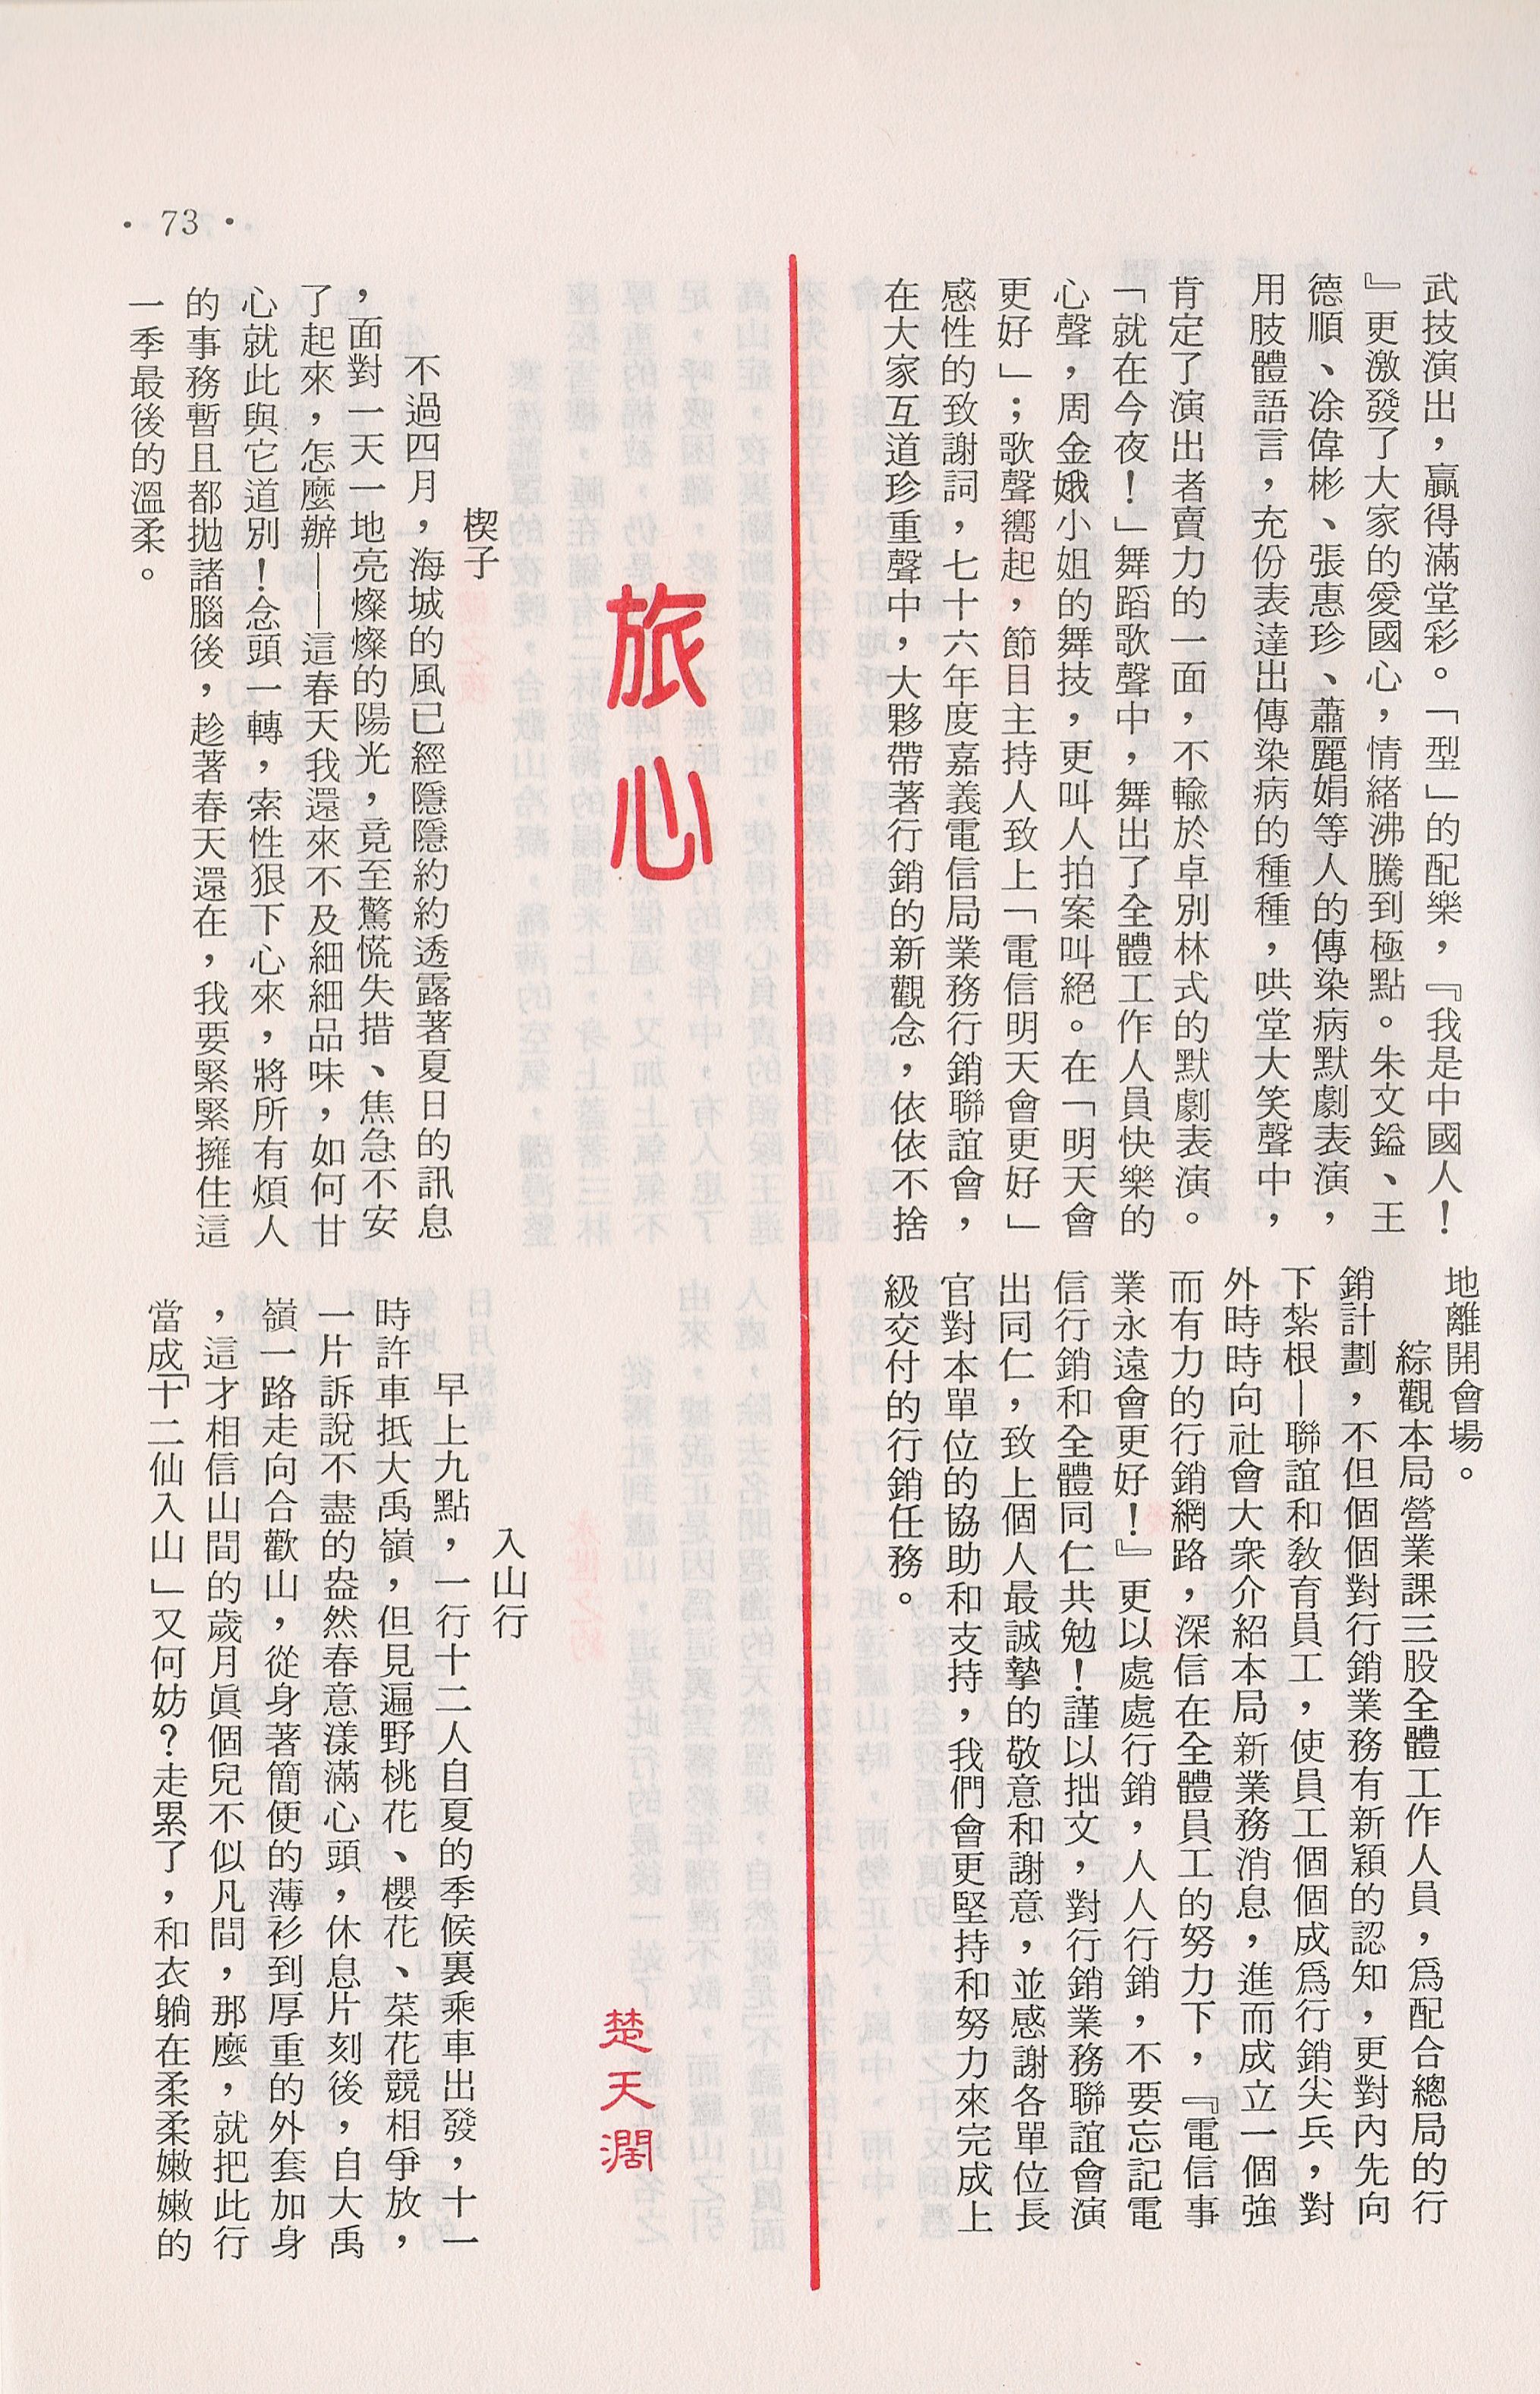 武技演出，贏得滿堂彩。「型」的配樂，『我是中國人！
』更激發了大家的愛國心，情緒沸騰到極點。朱文鎰、王
德順、凃偉彬、張惠珍、蕭麗娟等人的傳染病默劇表演，
用肢體語言，充份表達出傳染病的種種，哄堂大笑聲中，
肯定了演出者賣力的一面，不輸於卓別林式的默劇表演。
「就在今夜！」舞蹈歌聲中，舞出了全體工作人員快樂的
心聲，周金娥小姐的舞技，更叫人拍案叫絕。在「明天會
更好」；歌聲嚮起，節目主持人致上「電信明天會更好」
感性的致謝詞，七十六年度嘉義電信局業務行銷聯誼會，
在大家互道珍重聲中，大夥帶著行銷的新觀念，依依不捨
地離開會場。
綜觀本局營業課三股全體工作人員，爲配合總局的行
銷計劃，不但個個對行銷業務有新穎的認知，更對內先向
下紮根—聯誼和教育員工，使員工個個成爲行銷尖兵，對
外時時向社會大衆介紹本局新業務消息，進而成立一個強
而有力的行銷網路，深信在全體員工的努力下，『電信事
業永遠會更好！』更以處處行銷，人人行銷，不要忘記電
信行銷和全體同仁共勉！謹以拙文，對行銷業務聯誼會演
出同仁，致上個人最誠摯的敬意和謝意，並感謝各單位長
官對本單位的協助和支持，我們會更堅持和努力來完成上
級交付的行銷任務。
旅心
楚天濶
楔子
不過四月，海城的風已經隱隱約約透露著夏日的訊息
，面對一天一地亮燦燦的陽光，竟至驚慌失措、焦急不安
了起來，怎麼辦——這春天我還來不及細細品味，如何甘
心就此與它道別！念頭一轉，索性狠下心來，將所有煩人
的事務暫且都拋諸腦後，趁著春天還在，我要緊緊擁住這
一季最後的溫柔。
入山行
早上九點，一行十二人自夏的季候裏乘車出發，十一
時許車抵大禹嶺，但見遍野桃花、櫻花、菜花競相爭放，
一片訴說不盡的盎然春意漾滿心頭，休息片刻後，自大禹
嶺一路走向合歡山，從身著簡便的薄衫到厚重的外套加身
，這才相信山間的歲月眞個兒不似凡間，那麼，就把此行
當成「十二仙入山」又何妨？走累了，和衣躺在柔柔嫩嫩的
• 73 •